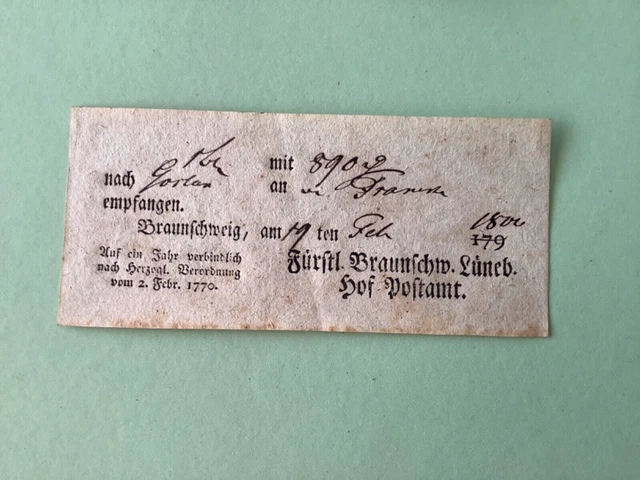 mit 890
nach Goslar an
empfangen.
Braunschweig, am 19 ten Feb 1800
179
Auf ein Jahr verbindlich
nach Herzogl. Verordnung
vom 2. Febr. 1770.
Fürstl. Braunschw. Lüneb.
Hof Postamt.